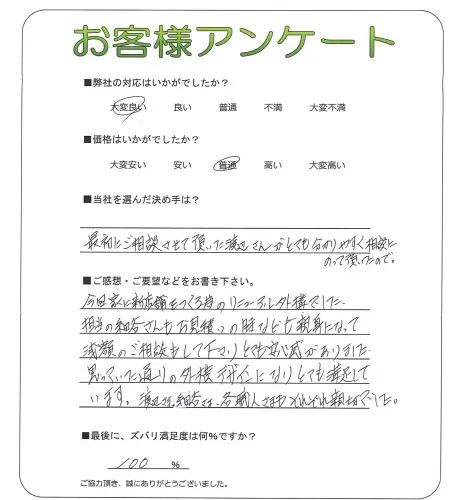 お客様アンケート
■弊社の対応はいかがでしたか？
大変良い 良い 普通 不満 大変不満
■価格はいかがでしたか？
大変安い 安い 普通 高い 大変高い
■当社を選んだ決め手は？
最初にご相談させて頂いた渡辺さんがとても分かりやすく相談に
のって頂いたので。
■ご感想・ご要望などをお書き下さい。
今回家に新店舗をつくる為のリニューアル外構でした。
担当の細谷さんもお見積りの時なども親身になって
減額のご相談もして下さりとても安心感がありました
思っていた通りの外構デザインになりとても満足して
います。渡辺さん、細谷さん、各職人さまもそれぞれ親切でした。
■最後に、ズバリ満足度は何％ですか？
100 ％
ご協力頂き、誠にありがとうございました。